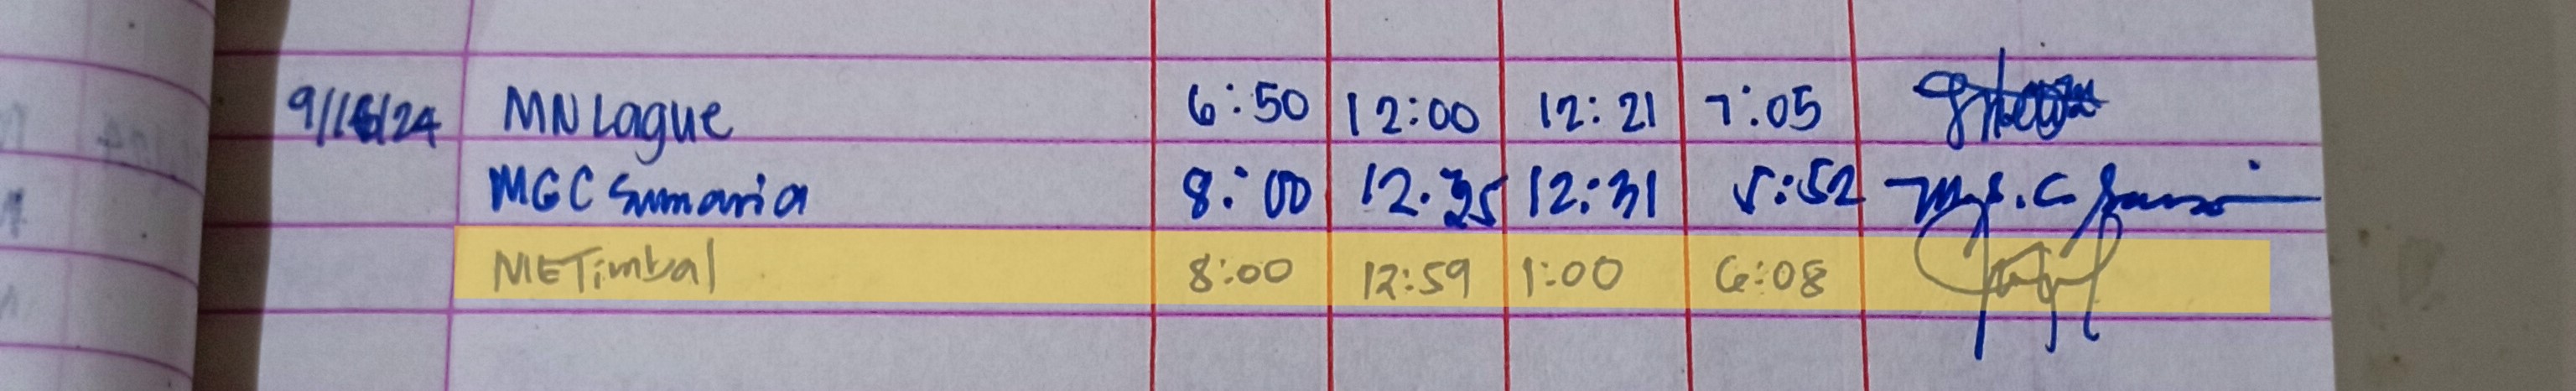 9/16/24 MN Lague 6:50 12:00 12:21 7:05
MGC Sumaria 8:00 12:35 12:31 5:52
NETimbal 8:00 12:59 1:00 6:08